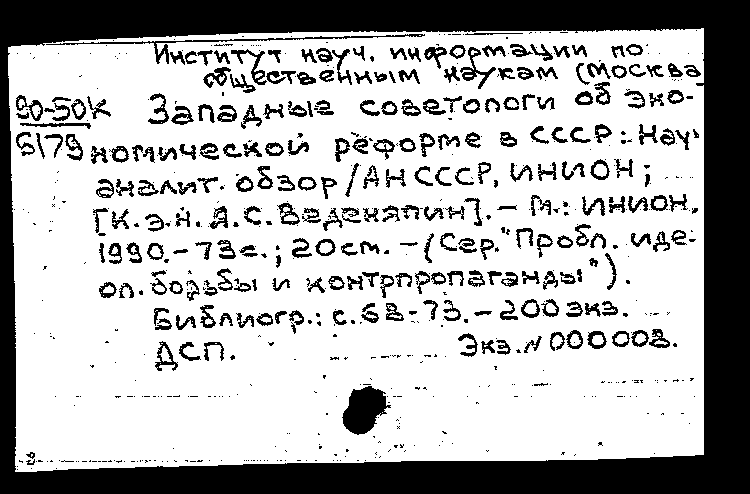 Институт науч. информации по
общественным наукам (Москва)
90-50К Западные советологи об эко-
6179 номической реформе в СССР: Науч.-
аналит. обзор / АН СССР, ИНИОН;
[К.э.н. А.С. Веденяпин]. – М.: ИНИОН,
1990. – 73 с.; 20 см. – (Сер. "Пробл. иде-
ол. борьбы и контрпропаганды").
Библиогр.: с. 68-73. – 200 экз.
ДСП. Экз. N 000008.